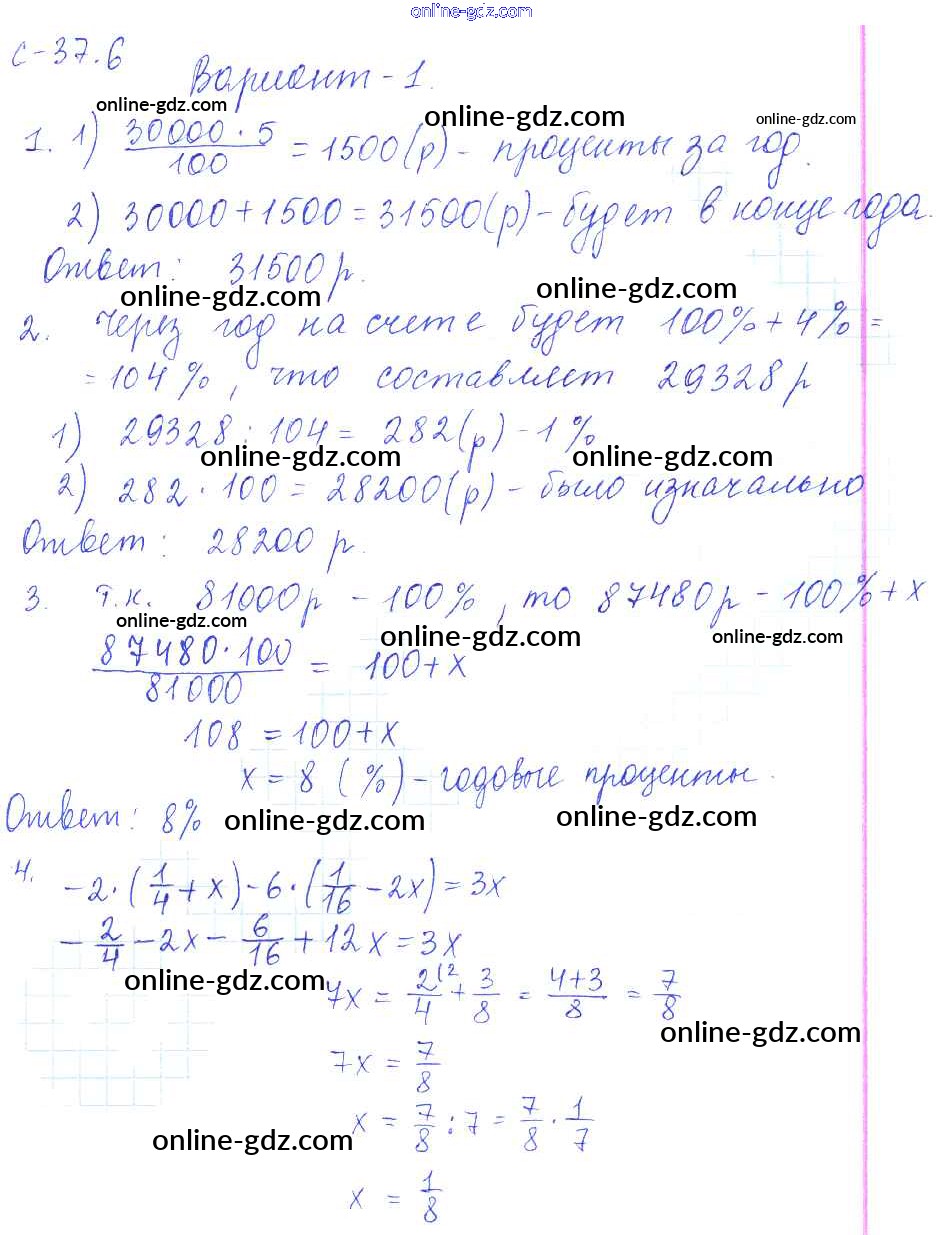 online-gdz.com
С-37.6
Вариант-1.
online-gdz.com online-gdz.com online-gdz.com
1. 1) 30000·5/100 = 1500(р) - проценты за год.
2) 30000+1500=31500(р)-будет в конце года.
Ответ: 31500 р.
online-gdz.com online-gdz.com
2. Через год на счете будет 100%+4%=
=104%, что составляет 29328 р
1) 29328:104= 282(р)-1%
online-gdz.com online-gdz.com
2) 282·100=28200(р)-было изначально
Ответ: 28200 р.
3. т.к. 81000р -100%, то 87480р-100%+x
online-gdz.com online-gdz.com online-gdz.com
87480·100/81000 = 100+x
108 =100+x
x=8 (%)-годовые проценты.
Ответ: 8%
online-gdz.com online-gdz.com
4. -2·(1/4+x)-6·(1/16-2x)=3x
-2/4-2x-6/16+12x=3x
online-gdz.com
7x = 2(2/4+3/8 = 4+3/8 = 7/8
online-gdz.com
7x = 7/8
x = 7/8:7=7/8·1/7
online-gdz.com
x = 1/8